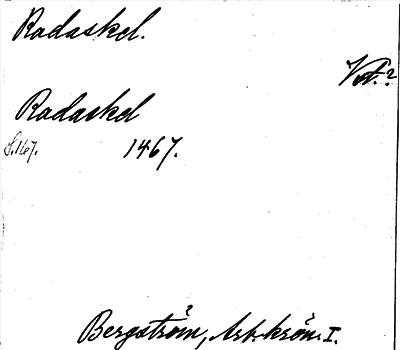 Radaskel.
Vct.?
Radaskel
S.167. 1467.
Bergström, Arb. krön. I.